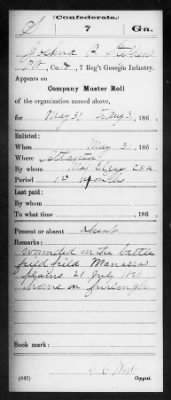 (Confederate.)
S 7 Ga.
Joshua
Co. , 7 Reg't Georgia Infantry.
Appears on
Company Muster Roll
of the organization named above,
for May 31 , 186 .
Enlisted:
When May 31 , 186 .
Where Atlanta
By whom
Period 12 months
Last paid:
By whom
To what time , 186 .
Present or absent Absent
Remarks:
wounded in the battle
field Manassas
plains 21 July 1861
home on furlough
Book mark:
(667) Copyist.